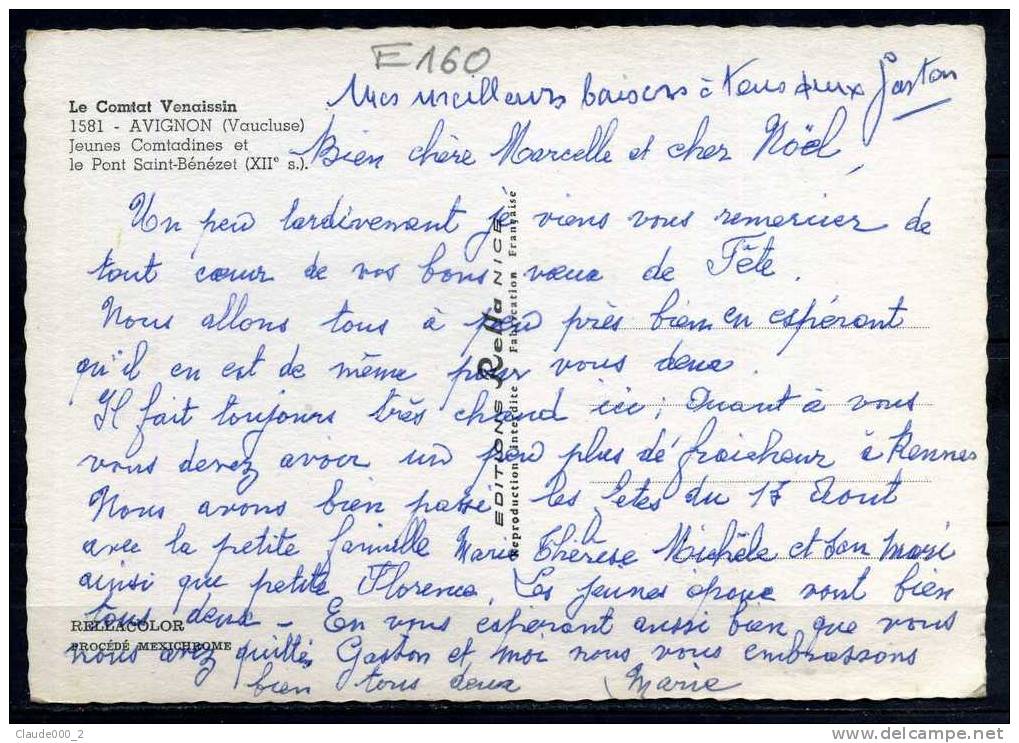 E160
Mes meilleurs baisers à tous deux Gaston
Le Comtat Venaissin
1581 - AVIGNON (Vaucluse)
Jeunes Comtadines et
le Pont Saint-Bénézet (XIIe s.).
Bien chère Marcelle et cher Nöel,
Un peu tardivement je viens vous remercier de
tout cœur de vos bons vœux de Fête.
Nous allons tous à peu près bien en espérant
qu'il en est de même pour vous deux.
Il fait toujours très chaud ici; Quant à vous
vous devez avoir un peu plus de fraicheur à Rennes
Nous avons bien passé les fetes du 17 Aout
avec la petite famille Marie Thérèse Michèle et son mari
ainsi que petite Florence, Les jeunes époux vont bien
tous deux - En vous espérant aussi bien que vous
nous avez quittés Gaston et moi nous vous embrassons
bien tous deux Marie
EDITIONS Rella NICE
Reproduction interdite Fabrication Française
RELLACOLOR
PROCÉDÉ MEXICHROME
Claude000_2
delcampe.net